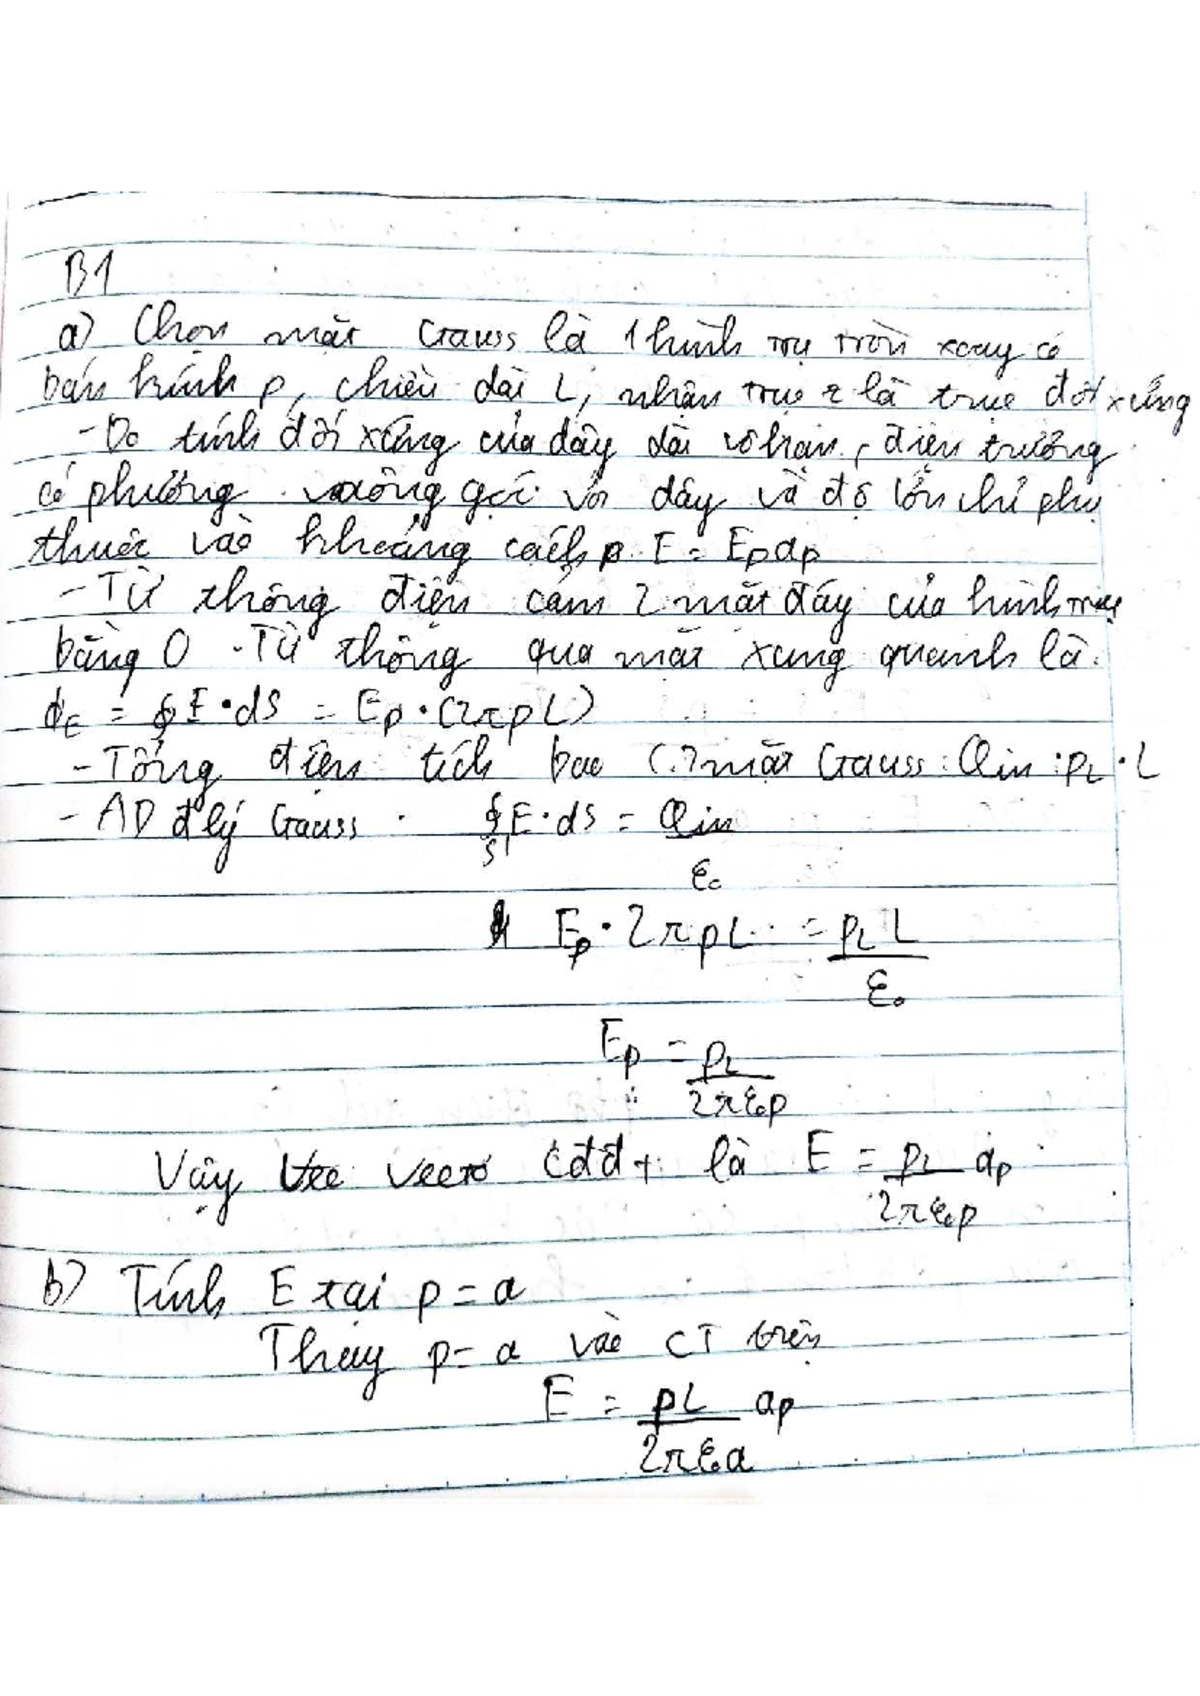 B1
a) Chọn mặt Gauss là 1 hình trụ tròn xoay có
bán kính ρ, chiều dài L, nhận trục z là trục đối xứng
- Do tính đối xứng của dây dài vô hạn, điện trường
có phương vuông góc với dây và độ lớn chỉ phụ
thuộc vào khoảng cách ρ. E = Eρaρ
- Từ thông điện cảm 2 mặt đáy của hình trụ
bằng 0 - Từ thông qua mặt xung quanh là:
ϕE = ∮E·dS = Eρ·(2πρL)
- Tổng điện tích bao mặt Gauss: Qin: ρL·L
- AD đlý Gauss. ∮S E·dS = Qin/ε₀
Eρ·2πρL = ρL L/ε₀
Eρ = ρL/2πε₀ρ
Vậy vectơ cđđt là E = ρL/2πε₀ρ aρ
b) Tính E tại ρ = a
Thay ρ = a vào CT trên
E = ρL/2πε₀a aρ